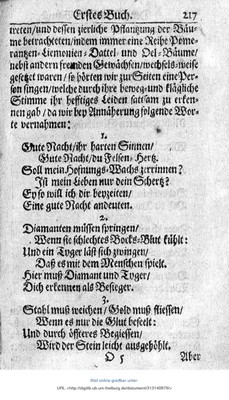 Erstes Buch. 217
treten/ und dessen zierliche Pflantzung der Bäu-
me betrachteten/ indem immer eine Reihe Pome-
rantzen- Liemonien- Dattel- und Oel-Bäume/
nebst andern fremden Gewächsen/ wechsels-weise
gesetzet waren/ so hörten wir zur Seiten eine Per-
son singen/ welche durch ihre beweg- und klägliche
Stimme ihr hefftiges Leiden sattsam zu erken-
nen gab/ da wir bey Annäherung folgende Wor-
te vernahmen:
1.
Gute Nacht/ ihr harten Sinnen/
Gute Nacht/ du Felsen-Hertz.
Soll mein Hofnungs-Wachs zerrinnen?
Ist mein Lieben nur dein Schertz?
Ey so will ich dir bey zeiten/
Eine gute Nacht andeuten.
2.
Diamanten müssen springen/
Wenn sie schlechtes Bocks-Blut kühlt:
Und ein Tyger läst sich zwingen/
Daß es mit dem Menschen spielt.
Hier muß Diamant und Tyger/
Dich erkennen als Besieger.
3.
Stahl muß weichen/ Gold muß fliessen/
Wenn es nur die Glut beseelt:
Und durch öffteres Begiessen/
Wird der Stein leicht ausgehöhlt.
O 5 Aber
Bild online greifbar unter: